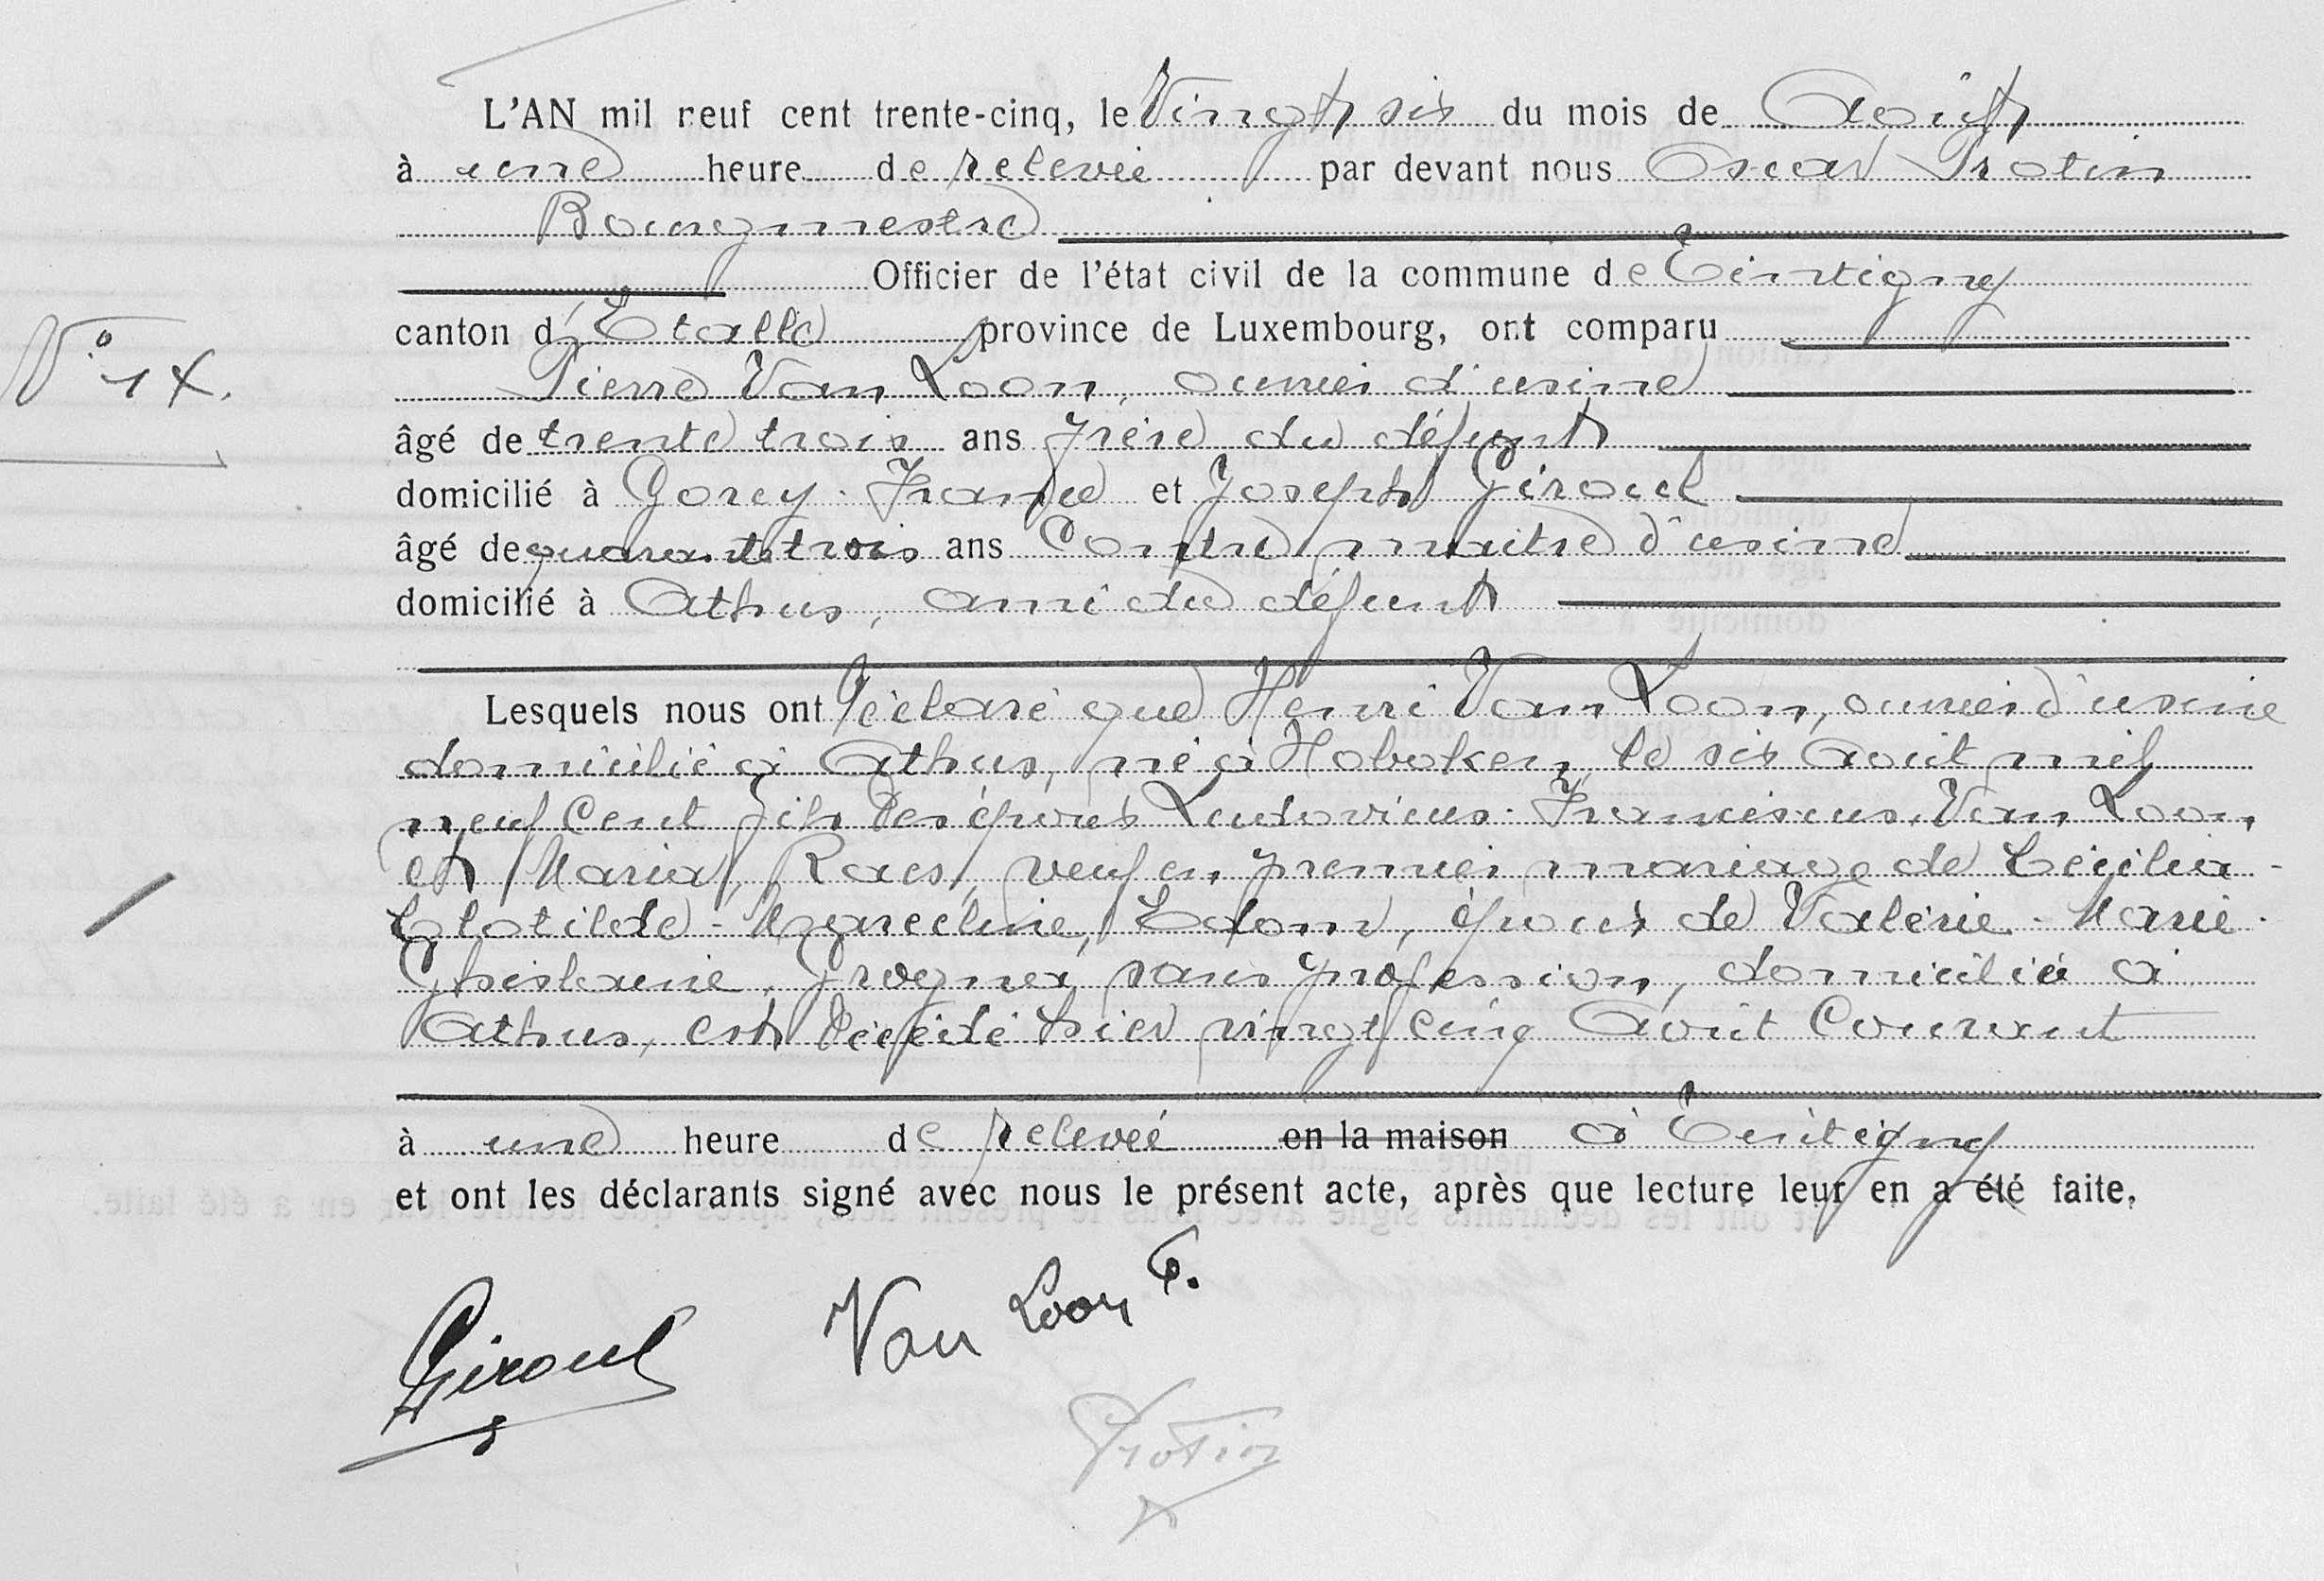 L'AN mil neuf cent trente-cinq, le Vingt six du mois de Août
à une heure de relevée par devant nous Oscar Protin
Bourgmestre
Officier de l'état civil de la commune de Tintigny
canton d'Etalle province de Luxembourg, ont comparu
N° 14.
Pierre Van Loon, ouvrier d'usine
âgé de trente trois ans frère du défunt
domicilié à Gorcy - France et Joseph Giroul
âgé de quarante trois ans Contre maître d'usine
domicilié à Athus, ami du défunt
Lesquels nous ont déclaré que Henri Van Loon, ouvrier d'usine
domicilié à Athus, né à Hoboken, le six août mil
neuf cent fils des époux Ludovicus - Franciscus Van Loon
et Maria Raes, veuf en premier mariage de Cécilia -
Clotilde - Marceline, Edom, époux de Valérie - Marie -
Ghislaine, Grognex, sans profession, domiciliée à
Athus, est décédé hier vingt cinq Août Courant
à une heure de relevée en la maison à Tintigny
et ont les déclarants signé avec nous le présent acte, après que lecture leur en a été faite.
Giroul Van Loon P.
Protin